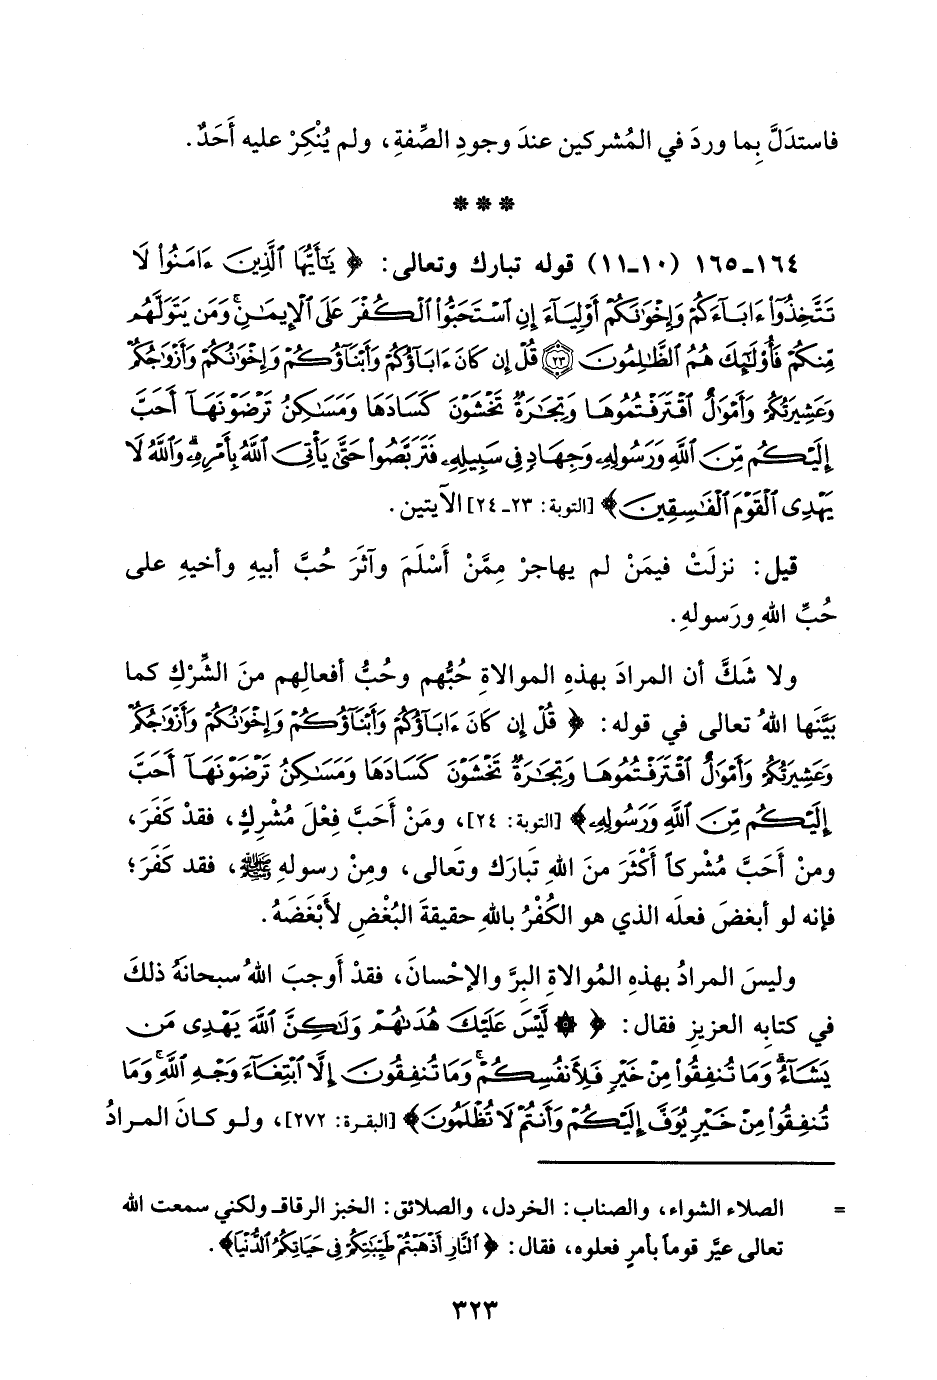 فاستدَلَّ بِما وردَ في المُشركين عندَ وجودِ الصِّفةِ، ولم يُنْكِرْ عليه أَحَدٌ.
* * *
١٦٤ـ١٦٥ (١٠ـ١١) قوله تبارك وتعالى: ﴿ يَٰٓأَيُّهَا ٱلَّذِينَ ءَامَنُوا۟ لَا
تَتَّخِذُوٓا۟ ءَابَآءَكُمْ وَإِخْوَٰنَكُمْ أَوْلِيَآءَ إِنِ ٱسْتَحَبُّوا۟ ٱلْكُفْرَ عَلَى ٱلْإِيمَٰنِ ۚ وَمَن يَتَوَلَّهُم
مِّنكُمْ فَأُو۟لَٰٓئِكَ هُمُ ٱلظَّٰلِمُونَ ٢٣ قُلْ إِن كَانَ ءَابَآؤُكُمْ وَأَبْنَآؤُكُمْ وَإِخْوَٰنُكُمْ وَأَزْوَٰجُكُمْ
وَعَشِيرَتُكُمْ وَأَمْوَٰلٌ ٱقْتَرَفْتُمُوهَا وَتِجَٰرَةٌ تَخْشَوْنَ كَسَادَهَا وَمَسَٰكِنُ تَرْضَوْنَهَآ أَحَبَّ
إِلَيْكُم مِّنَ ٱللَّهِ وَرَسُولِهِۦ وَجِهَادٍ فِى سَبِيلِهِۦ فَتَرَبَّصُوا۟ حَتَّىٰ يَأْتِىَ ٱللَّهُ بِأَمْرِهِۦ ۗ وَٱللَّهُ لَا
يَهْدِى ٱلْقَوْمَ ٱلْفَٰسِقِينَ ﴾ [التوبة: ٢٣ـ ٢٤] الآيتين.
قيل: نزلَتْ فيمَنْ لم يهاجرْ مِمَّنْ أَسْلَمَ وآثَرَ حُبَّ أبيهِ وأخيهِ على
حُبِّ اللهِ ورَسولهِ.
ولا شَكَّ أن المرادَ بهذهِ الموالاةِ حُبُّهم وحُبُّ أفعالِهم منَ الشِّرْكِ كما
بَيَّنَها اللهُ تعالى في قوله: ﴿ قُلْ إِن كَانَ ءَابَآؤُكُمْ وَأَبْنَآؤُكُمْ وَإِخْوَٰنُكُمْ وَأَزْوَٰجُكُمْ
وَعَشِيرَتُكُمْ وَأَمْوَٰلٌ ٱقْتَرَفْتُمُوهَا وَتِجَٰرَةٌ تَخْشَوْنَ كَسَادَهَا وَمَسَٰكِنُ تَرْضَوْنَهَآ أَحَبَّ
إِلَيْكُم مِّنَ ٱللَّهِ وَرَسُولِهِۦ﴾ [التوبة: ٢٤]، ومَنْ أَحَبَّ فِعْلَ مُشْرِكٍ، فقدْ كَفَرَ،
ومنْ أَحَبَّ مُشْركاً أَكْثَرَ منَ اللهِ تَبارَك وتَعالى، ومِنْ رسولهِ ﷺ، فقد كَفَرَ؛
فإنه لو أبغضَ فعلَه الذي هو الكُفْرُ باللهِ حقيقةَ البُغْضِ لأَبْغَضَهُ.
وليسَ المرادُ بهذهِ المُوالاةِ البِرَّ والإحْسانَ، فقدْ أَوجبَ اللهُ سبحانَهُ ذلكَ
في كتابِه العزيزِ فقال: ﴿ ۞ لَّيْسَ عَلَيْكَ هُدَىٰهُمْ وَلَٰكِنَّ ٱللَّهَ يَهْدِى مَن
يَشَآءُ ۗ وَمَا تُنفِقُوا۟ مِنْ خَيْرٍ فَلِأَنفُسِكُمْ ۚ وَمَا تُنفِقُونَ إِلَّا ٱبْتِغَآءَ وَجْهِ ٱللَّهِ ۚ وَمَا
تُنفِقُوا۟ مِنْ خَيْرٍ يُوَفَّ إِلَيْكُمْ وَأَنتُمْ لَا تُظْلَمُونَ﴾ [البقرة: ٢٧٢]، ولو كانَ المرادُ
= الصلاء الشواء، والصناب: الخردل، والصلائق: الخبز الرقاق ولكني سمعت الله
تعالى عيَّر قوماً بأمرٍ فعلوه، فقال: ﴿ ٱلنَّارِ أَذْهَبْتُمْ طَيِّبَٰتِكُمْ فِى حَيَاتِكُمُ ٱلدُّنْيَا﴾.
٣٢٣